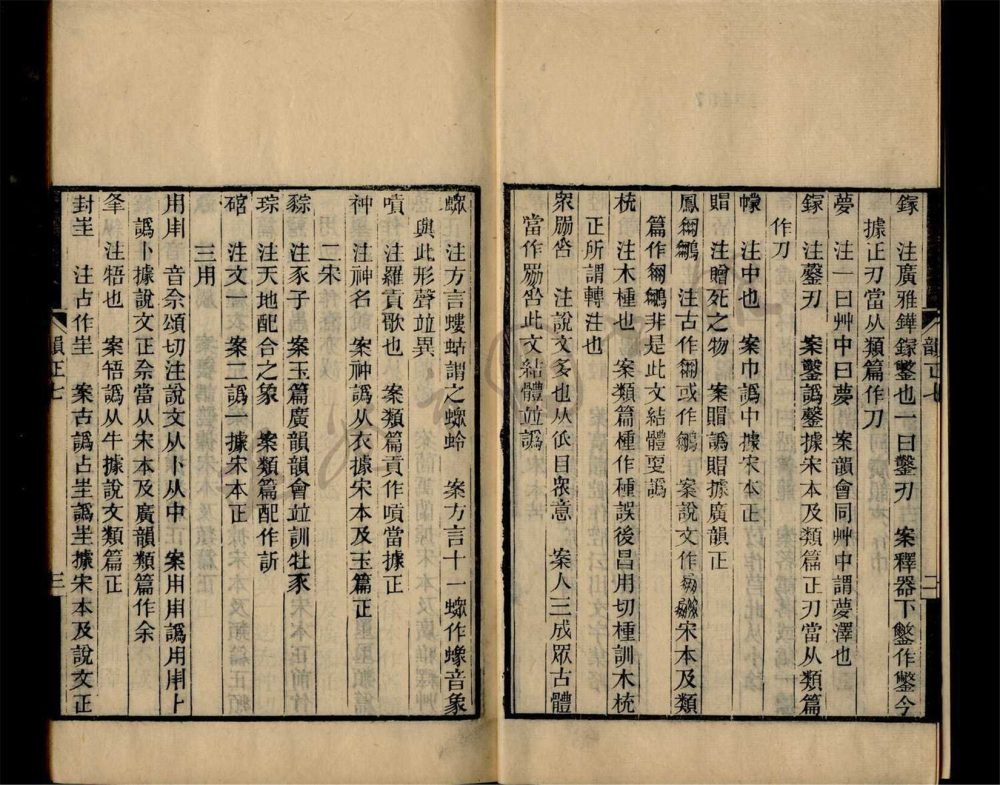 鎵　注廣雅鏵鎵鑿也一曰鑿刃　案釋器下鑿作鏨今
據正刃當从類篇作刀
夢　注一曰艸中曰夢　案韻會同艸中謂夢澤也
鎵　注鏨刃　案鑿譌鏨據宋本及類篇正刃當从類篇
作刀
幏　注中也　案巾譌中據宋本正
賵　注贈死之物　案賵譌賵據廣韻正
鳳　注古作或作　案說文作宋本及類
篇作非是此文結體譌
梡　注木種也　案類篇種作種誤後昌用切種訓木梡
正所謂轉注也
眾　注說文多也从低目眾意　案人三成眾古體
當作此文結體竝譌
韻正七
二
注方言螻蛄謂之蛉　案方言十一作蟓音象
與此形聲竝異
嗊　注羅貢歌也　案類篇貢作嗊當據正
神　注神名　案神譌从衣據宋本及玉篇正
二宋
豵　注豕子　案玉篇廣韻韻會竝訓牡豕
琮　注天地配合之象　案類篇配作訢
碂　注文一　案二譌一據宋本正
三用
用　音佘頌切注說文从卜从中　案用譌用
譌卜據說文正佘當从宋本及廣韻類篇作余
夆　注牾也　案啎譌从牛據說文類篇正
封　注古作　案古譌占譌據宋本及說文正
韻正七
三